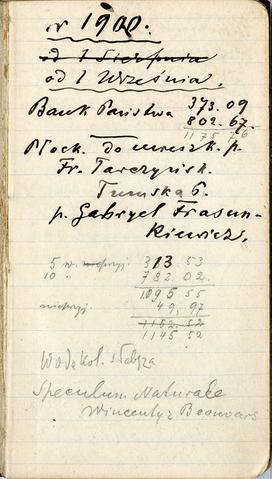 r 1900.
od 1 Sierpnia
od 1 Września.
Bank Państwa 373.09
802.67.
1175 76
Płock. Do mieszk. p.
Fr. Tarczyńsk.
Tumska 6.
p. Gabryel Frasun-
kiewicz.
5 w. 313 53
10 " 782.02.
1095 55
49,97
1152.52
1145 52
Woda kol. słabsza
Speculum Naturale
Wincenty z Beauvais